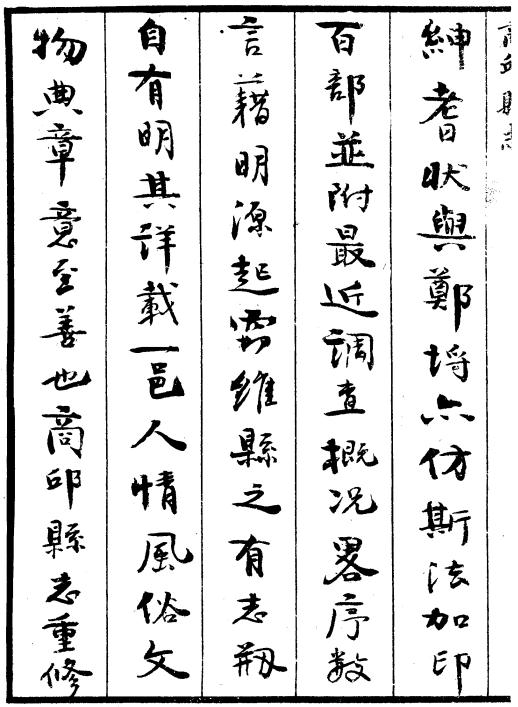 商邱縣志
紳耆狀與鄭埒亦仿斯法加印
百部並附最近調查概況畧序数
言藉明源起竊維縣之有志剏
自有明其詳載一邑人情風俗文
物典章意至善也商邱縣志重修